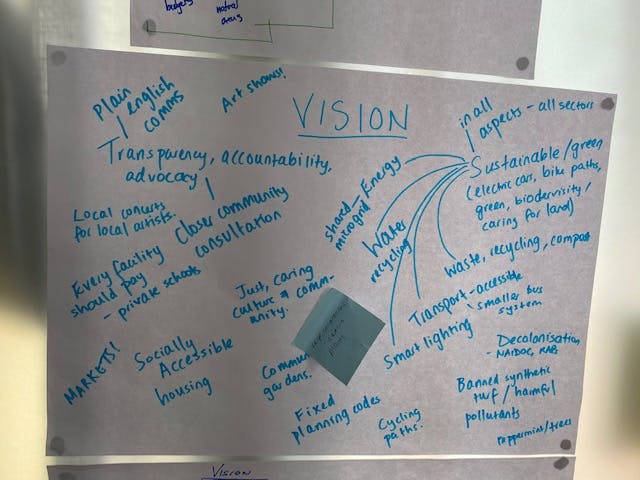 budgets
natral
areas
VISION
Plain
english
comms
Art shows!
in all
aspects - all sectors
Transparency, accountability,
advocacy
Closer community
consultation
Local concerts
for local artists.
Every facility
should pay
- private schools
Just, caring
culture & comm-
unity.
MARKETS!
Socially
Accessible
housing
gardens.
Fixed
planning codes
Cycling
paths.
Sustainable/green
(electric cars, bike paths,
green, biodervisity/
caring for land)
Energy
shared
microgrid
Water
recycling
Waste, recycling, compost
Transport - accessible
smaller bus
system
Smart lighting
Decolanisation
- NAIDOC, RAPs
Banned synthetic
turf / harmful
pollutants
peppermint/trees
plants
VISION